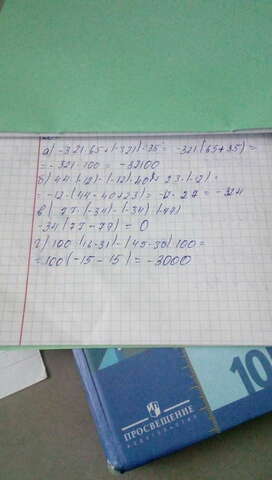 а) -321·65+(-321)·35 = -321(65+35) =
= -321·100 = -32100
б) 44·(-12)-(-12)·40+ 23·(-12) =
= -12·(44-40+23) = -12·27 = -324
в) 77·(-34)-(-34)·(77)
-34(77-77) = 0
г) 100·(16-31)-(45-30)·100 =
= 100(-15-15) = -3000
10
ПРОСВЕЩЕНИЕ
ИЗДАТЕЛЬСТВО